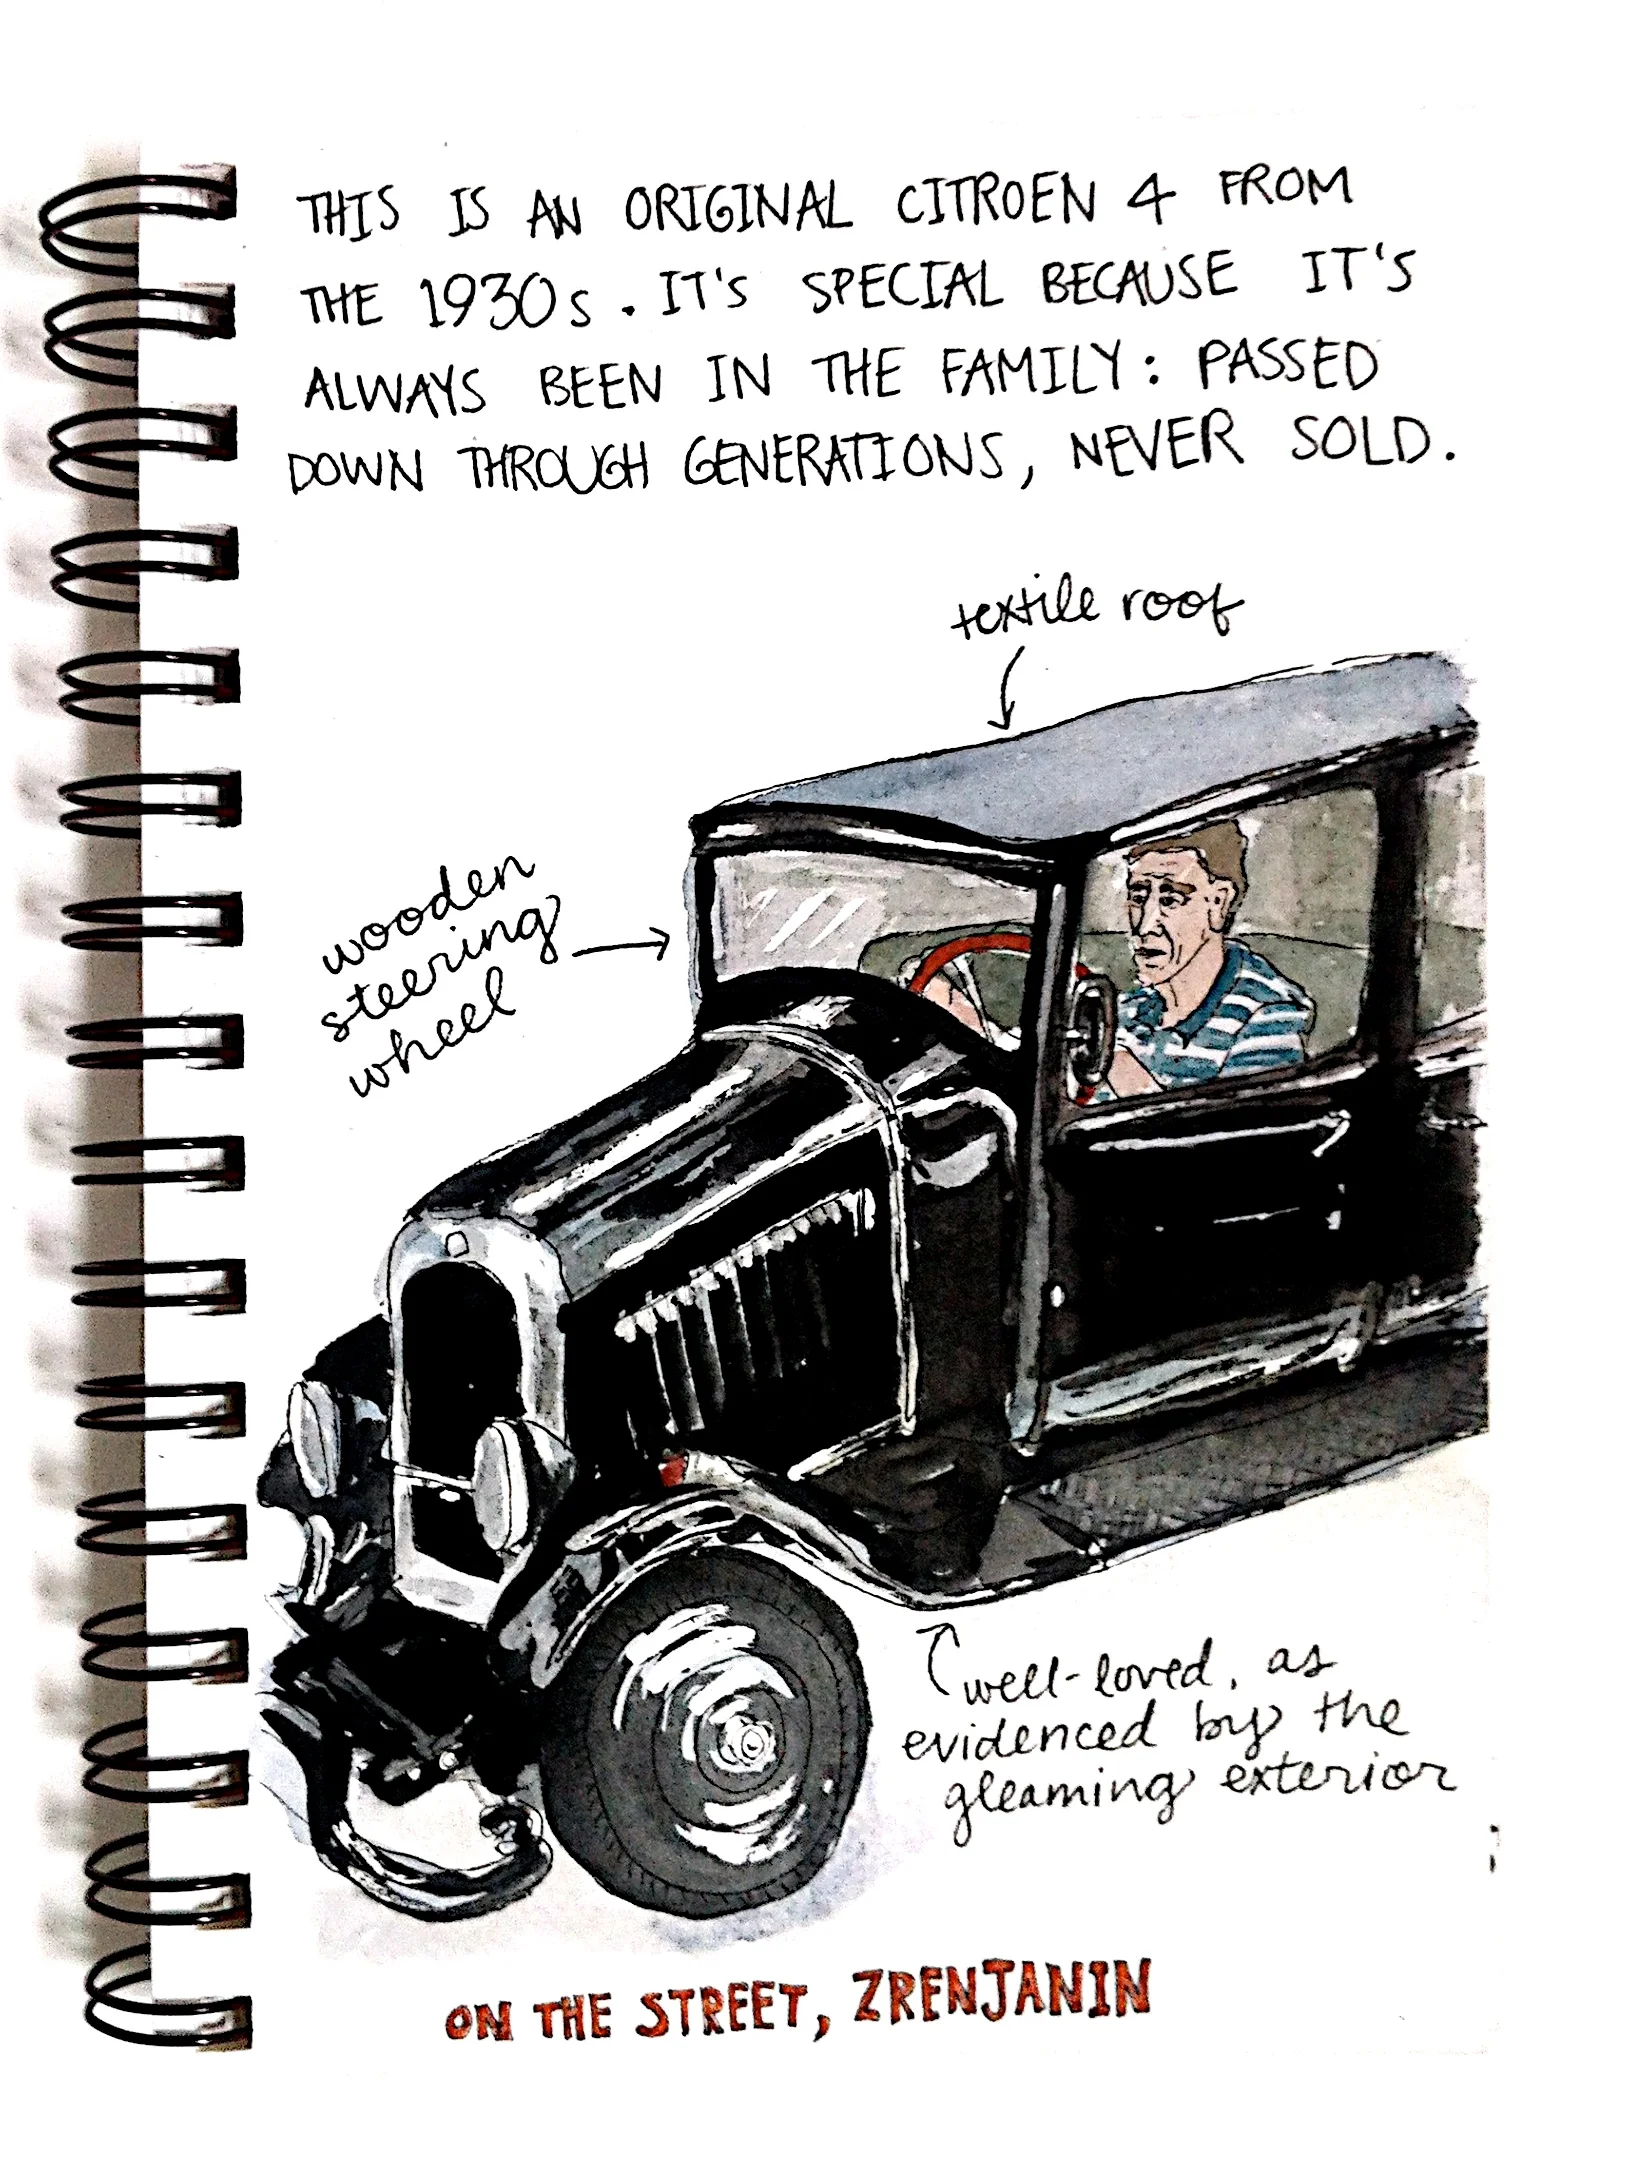 THIS IS AN ORIGINAL CITROEN 4 FROM
THE 1930s. IT'S SPECIAL BECAUSE IT'S
ALWAYS BEEN IN THE FAMILY: PASSED
DOWN THROUGH GENERATIONS, NEVER SOLD.
textile roof
wooden
steering
wheel
well-loved, as
evidenced by the
gleaming exterior
ON THE STREET, ZRENJANIN